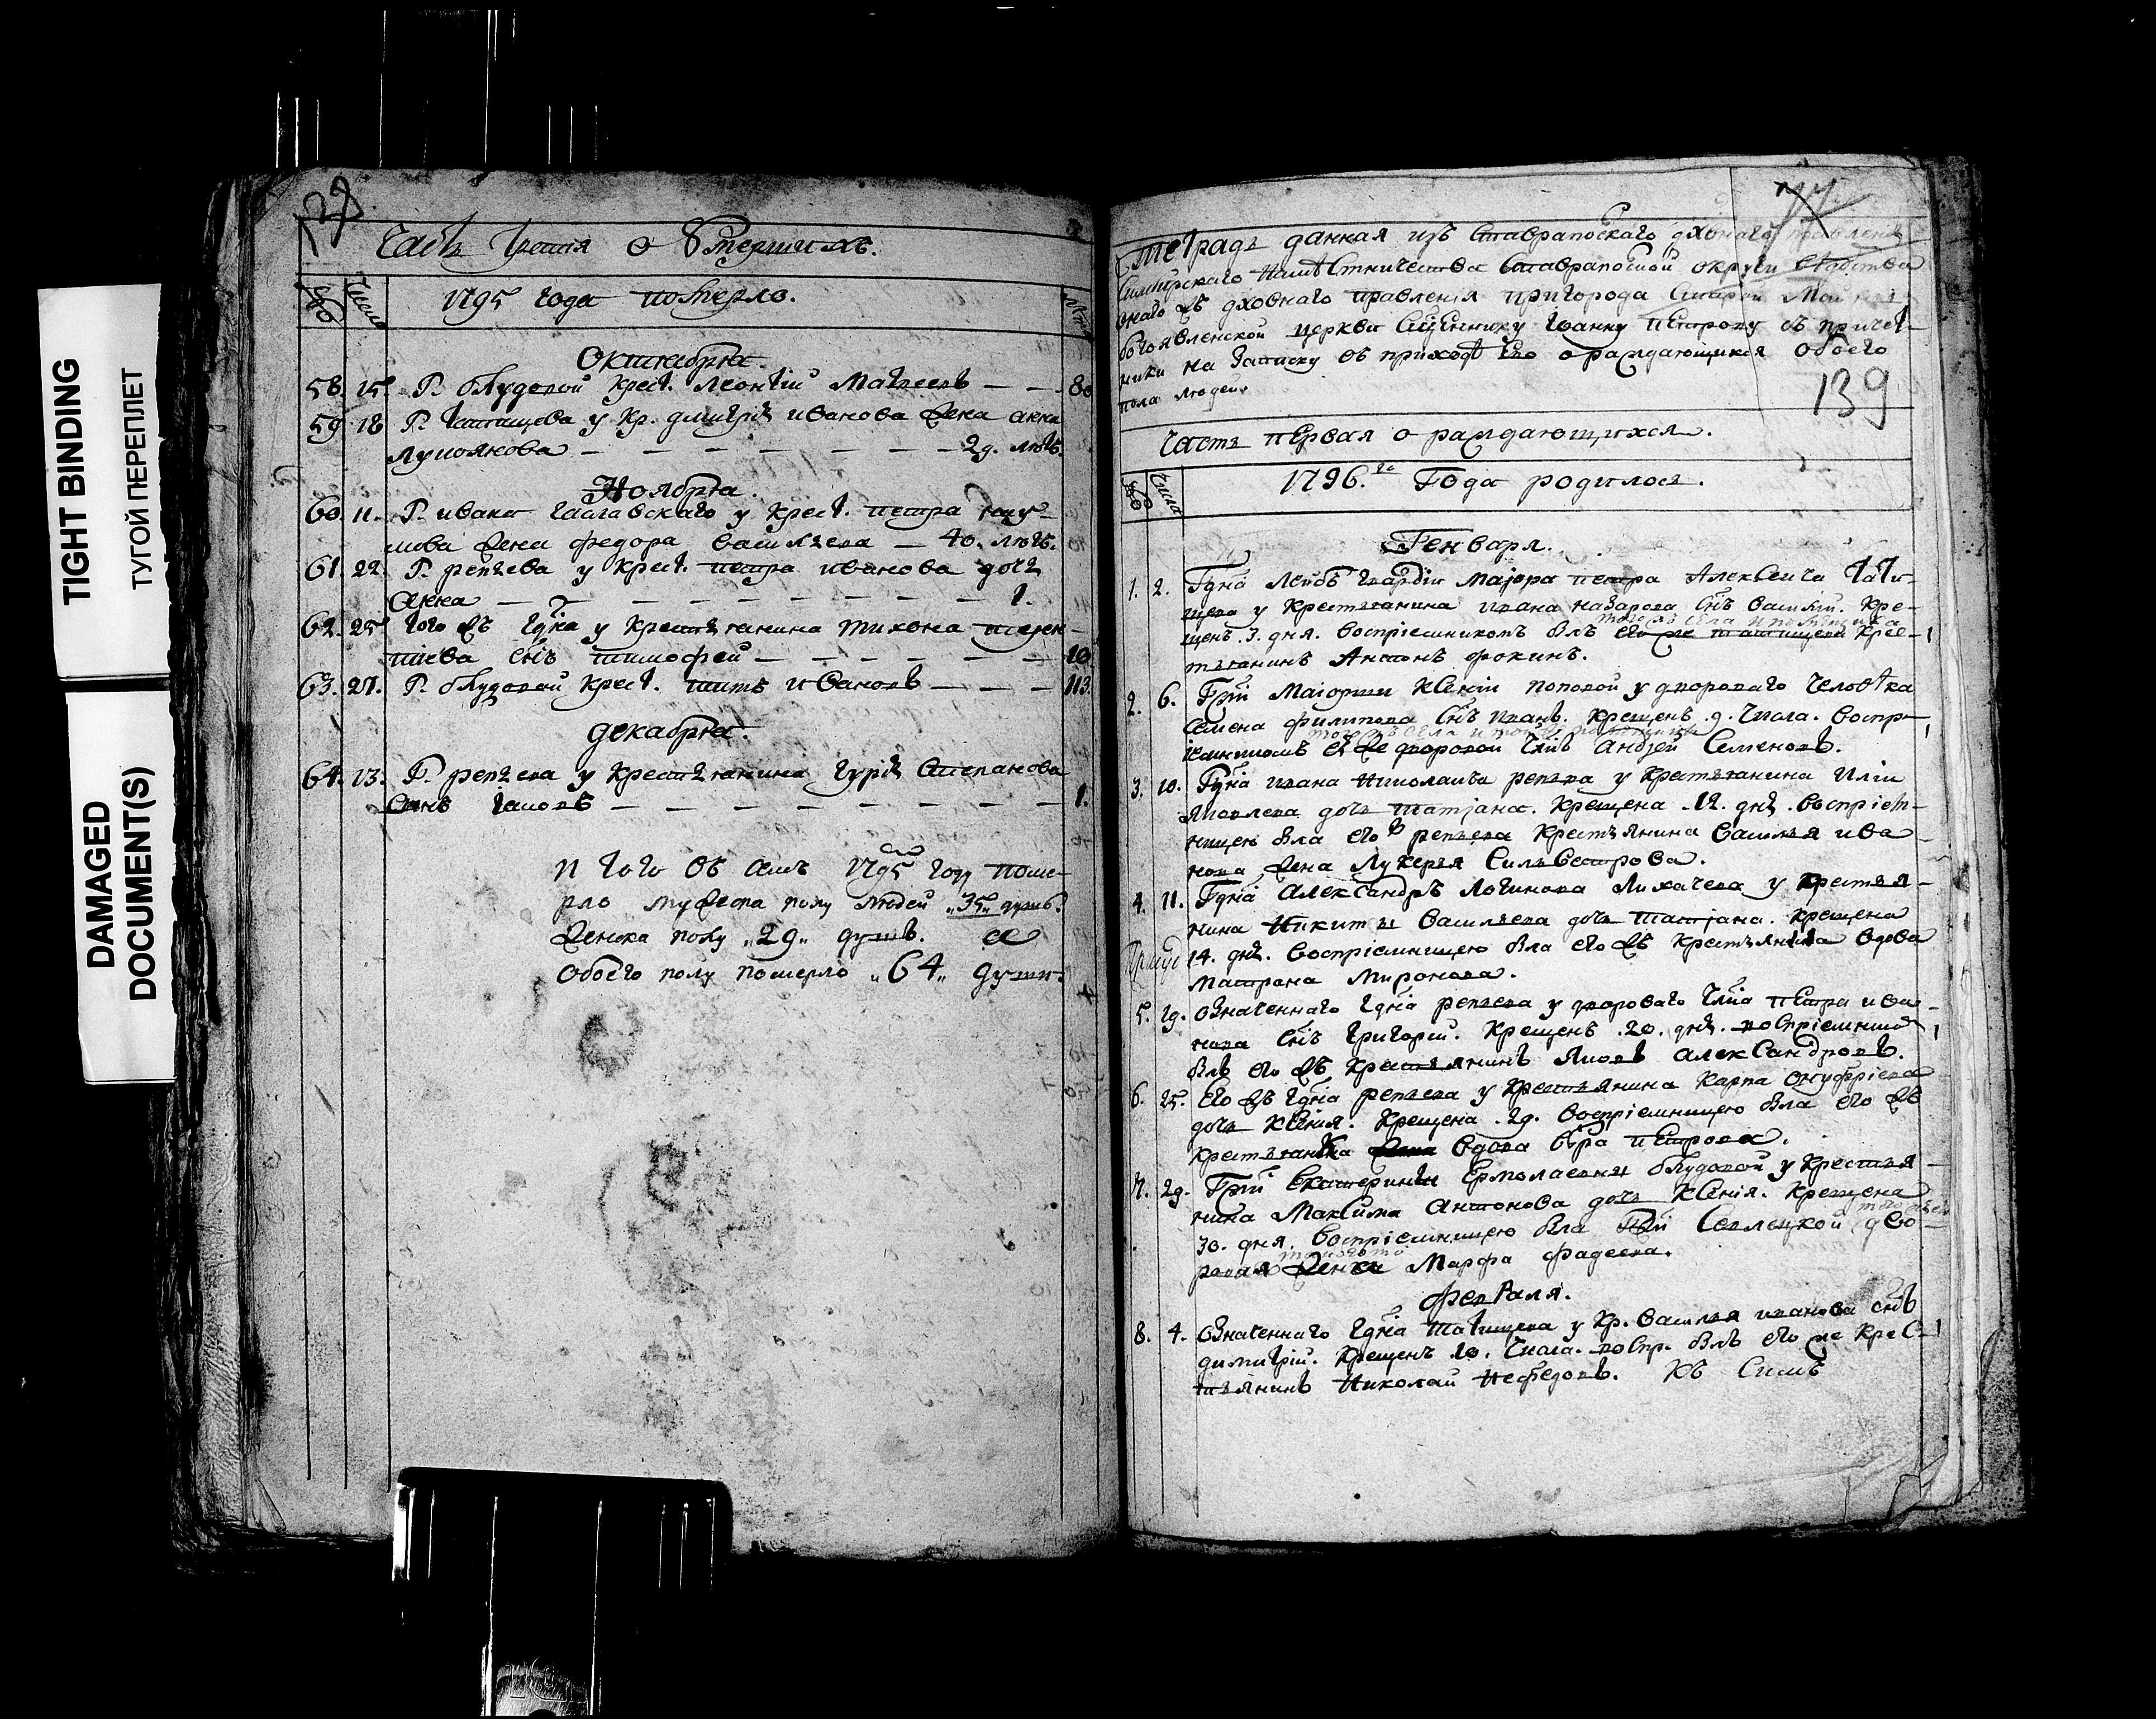 TIGHT BINDING
ТУГОЙ ПЕРЕПЛЕТ
DAMAGED
DOCUMENT(S)
Часть третия о Умершихъ.
Число
1795 года померло.
Октября.
58. 15. Г. блудовой крест. Леонтiй Матвеевъ — — 80
59. 18 Г. татищева у кр. дмитрiя иванова жена анна
лукоянова — — — — — — — 29. летъ.
Ноября.
60. 11. Г. ивана чаславскаго у крест. петра
жена федора васильева — 40. летъ.
61. 22. Г. репьева у крест. петра иванова дочь
анна — — — — — — — — 1.
62. 25 того жъ гдна у крестьянина тихона
снъ тимофей — — — — — 10
63. 27. Г. блудовой крест. титъ ивановъ — — — 113.
декабря.
64. 13. Г. репьева у крестьянина гурiя степанова
сынъ iаковъ — — — — — — — 1.
И того въ семъ 1795 году поме-
рло мужеска полу людей „35„ душъ.
женска полу „29„ душъ. а
обоего полу померло „64„ души.
Тетрадь данная изъ Ставрапоскаго дховнаго правленiя
Симбирскаго наместничества Ставрапоской округи ведомства
онаго жъ дховнаго правленiя пригорода Старой Майны
богоявленской церкви Сщеннику Iоанну петрову съ причет-
ники на записку въ приходе его о раждающихся обоего
пола людей.
139
Часть первая о раждающихся.
Число
1796.го Года родилося.
Генваря.
1. 2. Гдна Лейбъ гвардiи маiора петра Алексеича Тати-
щева у крестьянина ивана назарова снъ василiй. Кре-
щенъ .3. дня. воспрiемникомъ былъ
того жъ села и помещика
его же татищева крес-
тьянинъ Антонъ фокинъ.
2. 6. Гжи Маiорши Ксенiи поповой у двороваго человека
семена филипова снъ иванъ. крещенъ .9. числа. воспр-
iемникомъ ея же дворовой члвкъ андрей Семеновъ.
3. 10. Гдна ивана николаича репьева у крестьянина Илiи
яковлева дочь татiана. крещена .12. дня. воспрiем-
ницею была его жъ репьева крестьянина василья ива-
нова жена Лукерья Сильвестрова.
4. 11. Гдна александръ Логинова Лихачева у крестья-
нина никиты васильева дочь татiана. крещена
14. дня. воспрiемницею была его жъ крестьянина вдова
матрена миронова.
5. 19. означеннаго гдна репьева у двороваго члвка петра ива-
нова снъ григорiй. крещенъ .20. дня. воспрiемникъ
былъ его жъ крестьянинъ яковъ александровъ.
6. 25. его жъ гдна репьева у крестьянина карпа онуфрiева
дочь ксенiя. крещена .29. воспрiемницею была его жъ
крестьянка жена вдова вера петрова.
7. 29. Гжи екатерины Ермолаевны блудовой у крестья-
нина максима антонова дочь ксенiя. крещена
30. дня. воспрiемницею была гжи дво-
ровая женка Марфа фадеева.
февраля.
8. 4. означеннаго гдна татищева у кр. василья иванова снъ
димитрiй. крещенъ 10. числа. воспр. былъ его же крес-
тьянинъ николай нефедовъ. Къ Симъ